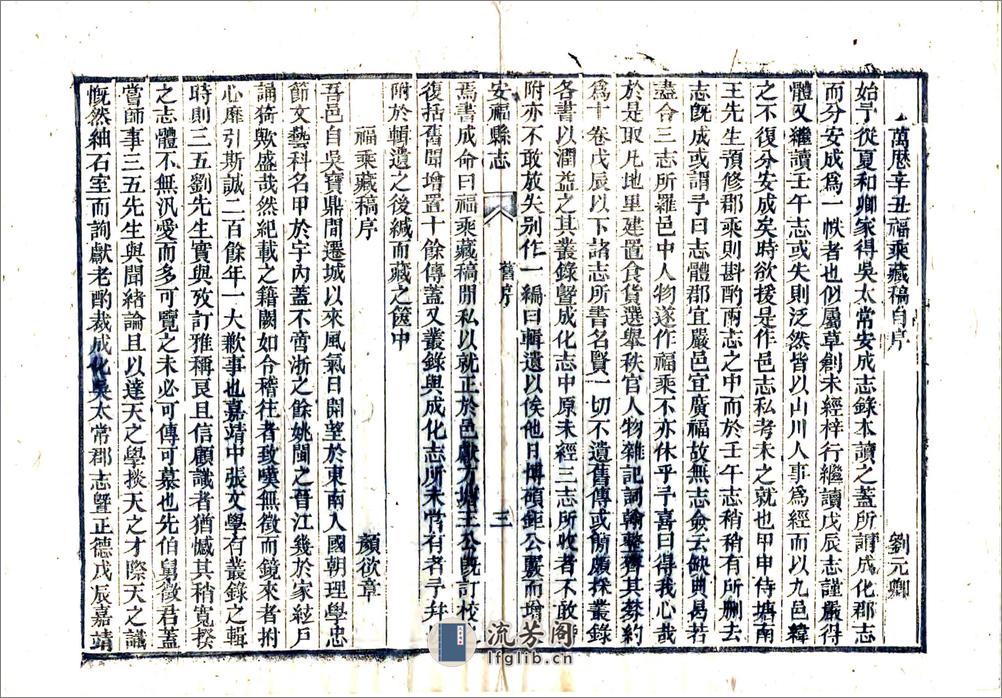 萬曆辛丑福乘藏稿自序
劉元卿
始予從夏和卿家得吳太常安成志錄本讀之蓋所謂成化郡志
而分安成爲一帙者也似屬草創未經梓行繼讀戊辰志謹嚴得
體又繼讀壬午志或失則泛然皆以山川人事爲經而以九邑緯
之不復分安成矣時欲援是作邑志私考未之就也甲申侍塘南
王先生預修郡乘則斟酌兩志之中而於壬午志稍稍有所刪去
志旣成或謂予曰志體郡宜嚴邑宜廣福故無志僉云缺典曷若
盡合三志所羅邑中人物遂作福乘不亦休乎予喜曰得我心哉
於是取凡地里建置食貨選舉秩官人物雜記詞翰整齊其棼約
爲十卷戊辰以下諸志所書名賢一切不遺舊傳或簡頗採叢錄
各書以潤益之其叢錄曁成化志中原未經三志所收者不敢
附亦不敢放失别作一編曰輯遺以俟他日博碩鉅公嚴而增
安福縣志
舊序
三
焉書成命曰福乘藏稿閒私以就正於邑獻方塘王公旣訂校
復括舊聞增置十餘傳蓋又叢錄與成化志所未嘗有者予幷
附於輯遺之後緘而藏之篋中
福乘藏稿序
顏欲章
吾邑自吳寶鼎間遷城以來風氣日開望於東南入國朝理學忠
節文藝科名甲於宇內蓋不啻浙之餘姚閩之晉江幾於家絃戶
誦猗歟盛哉然紀載之籍闕如令稽往者致嘆無徵而鏡來者拊
心靡引斯誠二百餘年一大歉事也嘉靖中張文學有叢錄之輯
時則三五劉先生實與攷訂雅稱良且信顧識者猶憾其稍寬揆
之志體不無汎愛而多可覽之未必可傳可慕也先伯舅徵君蓋
嘗師事三五先生與聞緒論且以達天之學掞天之才際天之識
慨然紬石室而詢獻老酌裁成化吳太常郡志曁正德戊辰嘉靖
流芳閣
lfglib.cn